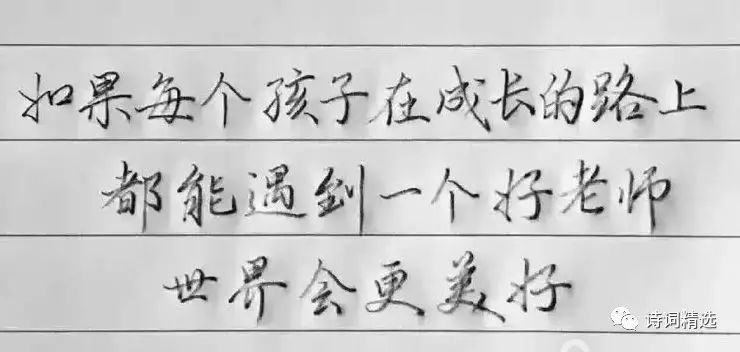 如果每个孩子在成长的路上
都能遇到一个好老师
世界会更美好
诗词精选